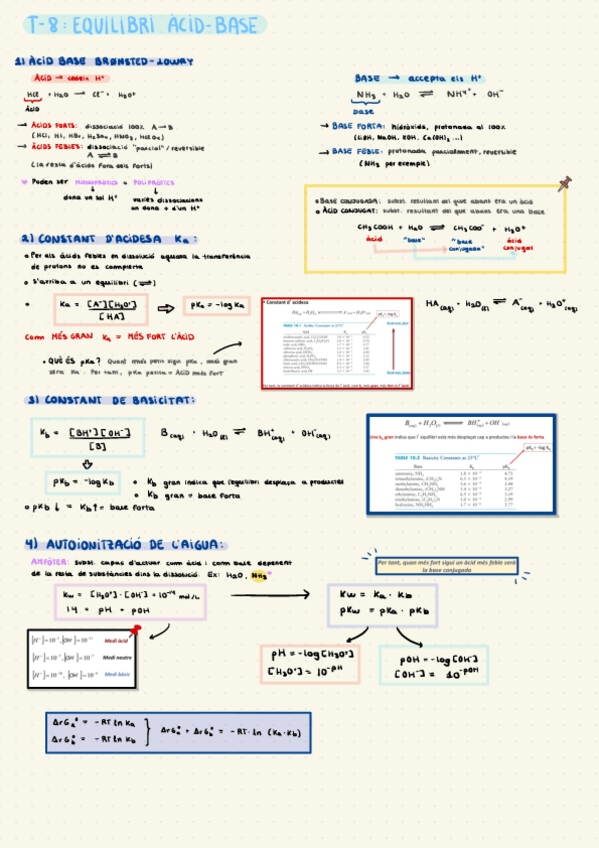 T-8: EQUILIBRI ÀCID-BASE
1) ÀCID BASE BRØNSTED-LOWRY
ÀCID → cedeix H⁺
HCl + H₂O → Cl⁻ + H₃O⁺
ÀCID
→ ÀCIDS FORTS: dissociació 100% A → B
(HCl, HI, HBr, H₂SO₄, HNO₃, HClO₄)
→ ÀCIDS FEBLES: dissociació "parcial"/reversible
A ⇌ B
(la resta d'àcids fora dels forts)
Poden ser MONOPRÒTICS o POLIPRÒTICS
dona un sol H⁺
varies dissociacions
on dona + d'un H⁺
BASE → accepta els H⁺
NH₃ + H₂O ⇌ NH⁴⁺ + OH⁻
base
→ BASE FORTA: hidròxids, protonada al 100%
(LiOH, NaOH, KOH, Ca(OH)₂ ...)
→ BASE FEBLE: protonada parcialment, reversible
(NH₃ per exemple)
• BASE CONJUGADA: subst. resultant del que abans era un àcid
• ÀCID CONJUGAT: subst. resultant del que abans era una base
CH₃COOH + H₂O ⇌ CH₃COO⁻ + H₃O⁺
àcid "base" "base conjugada" àcid conjugat
2) CONSTANT D'ACIDESA Ka:
• Per als àcids febles en dissolució aquosa la transferència
de protons no és completa
• S'arriba a un equilibri (⇌)
• Ka = [A⁻][H₃O⁺] / [HA] ⇒ pKa = -log Ka
Com MÉS GRAN Ka = MÉS FORT L'ÀCID
• QUÈ ÉS pKa? Quant més petit sigui pKa, més gran
serà Ka. Per tant, pKa petita = ÀCID més fort
• Constant d'acidesa
pKa = -log Ka
TABLE 10.1 Acidity Constants at 25°C
HA(aq) + H₂O(l) ⇌ A⁻(aq) + H₃O⁺(aq)
3) CONSTANT DE BASICITAT:
Kb = [BH⁺][OH⁻] / [B]
B(aq) + H₂O(l) ⇌ BH⁺(aq) + OH⁻(aq)
pKb = -log Kb
• Kb gran indica que l'equilibri desplaça a productes
• Kb gran = base forta
• pKb ↓ = Kb↑ = base forta
B(aq) + H₂O(l) ⇌ BH⁺(aq) + OH⁻(aq)
Una kb gran indica que l'equilibri està més desplaçat cap a productes i la base és forta.
pKb = -log Kb
TABLE 10.2 Basicity Constants at 25°C
Base Kb pKb
4) AUTOIONITZACIÓ DE L'AIGUA:
AMFÒTER: subst. capaç d'actuar com àcid i com base depenent
de la resta de substàncies dins la dissolució. Ex: H₂O, NH₃
Per tant, quan més fort sigui un àcid més feble serà
la base conjugada
Kw = [H₃O⁺]·[OH⁻] = 10⁻¹⁴ mol/L
14 = pH + pOH
Kw = Ka · Kb
pKw = pKa · pKb
Medi àcid
Medi neutre
Medi bàsic
pH = -log[H₃O⁺]
[H₃O⁺] = 10⁻ᵖᴴ
pOH = -log[OH⁻]
[OH⁻] = 10⁻ᵖᴼᴴ
ΔrGa° = -RT ln Ka
ΔrGb° = -RT ln Kb
ΔrGa° + ΔrGb° = -RT · ln (Ka·Kb)